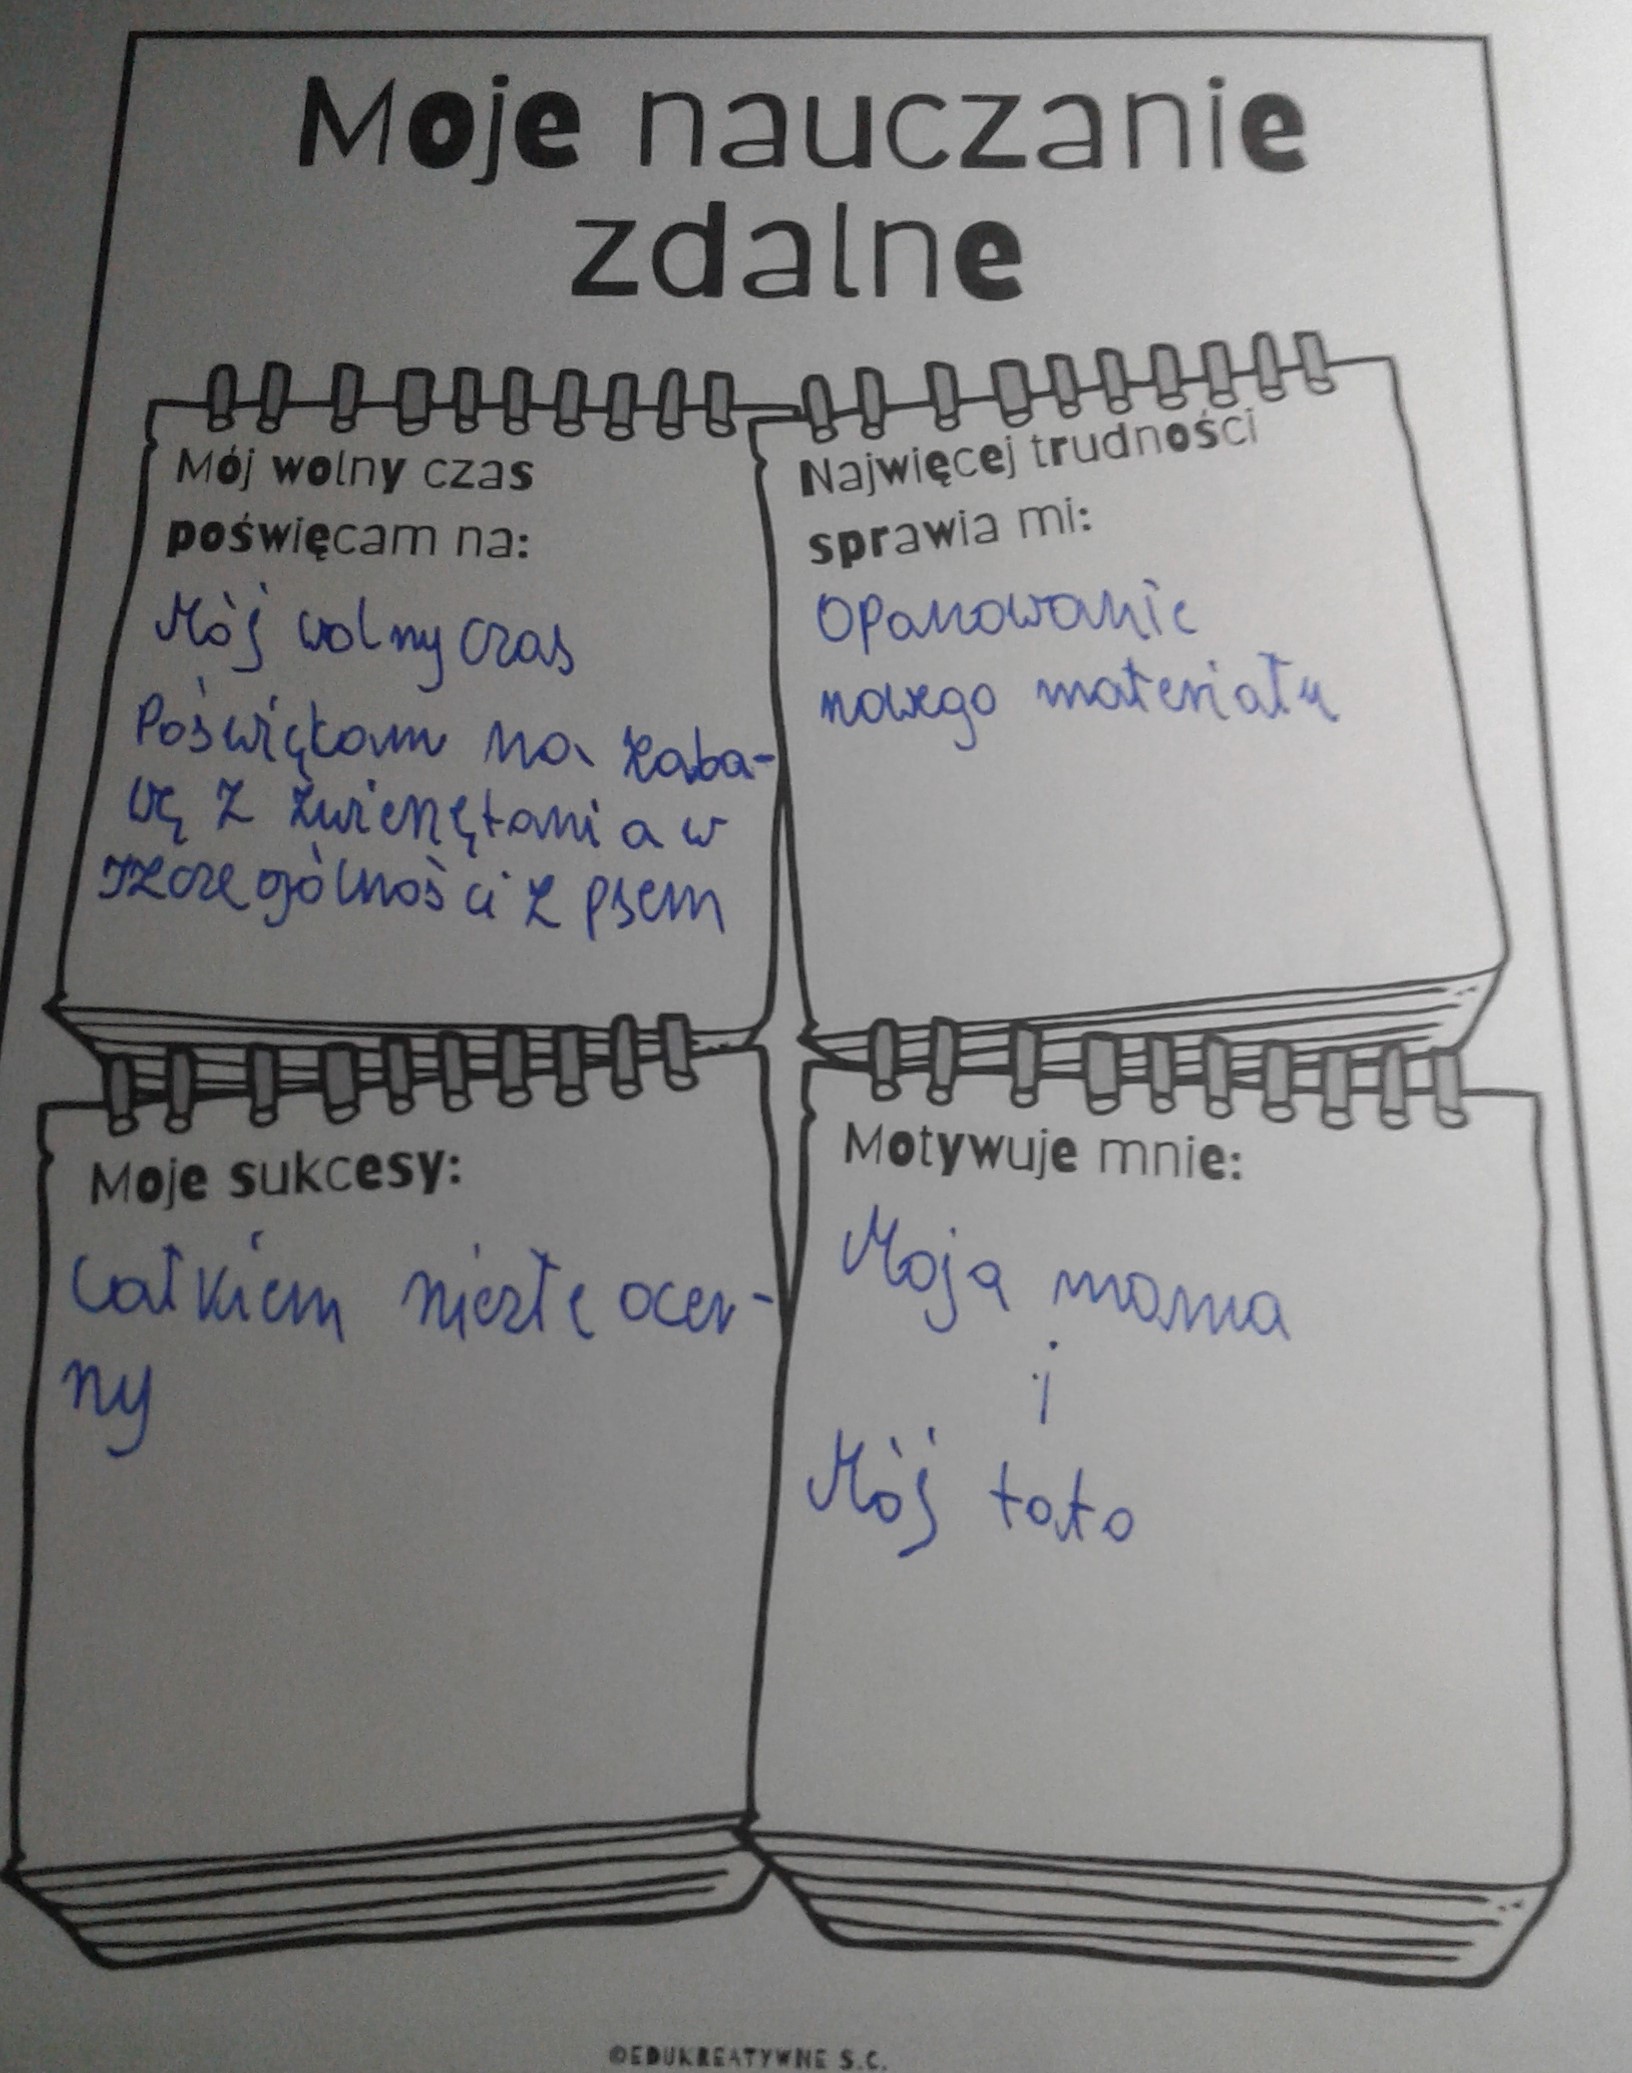 Moje nauczanie
zdalne
Mój wolny czas
poświęcam na:
Mój wolny czas
Poświękam na zaba-
wę z zwierzętami a w
szczególności z psem
Najwięcej trudności
sprawia mi:
Opanowanie
nowego materiału
Moje sukcesy:
Całkiem niezłe ocen-
ny
Motywuje mnie:
Moja mama
i
Mój tato
©EDUKREATYWNE S.C.